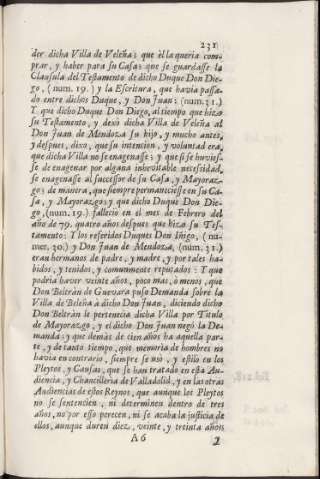 231
der dicha Villa de Veleña; que èl la queria com-
prar, y haber para su Casa; que se guardasse la
Clausula del Testamento de dicho Duque Don Die-
go, (num. 19.) y la Escritura, que havia passa-
do entre dichos Duque, y Don Juan: (num. 21.)
Y que dicho Duque Don Diego, al tiempo que hizo
su Testamento, y dexò dicha Villa de Veleña al
Don Juan de Mendoza su hijo, y mucho antes,
y despues, dixo, que su intencion, y voluntad era,
que dicha Villa no se enagenasse; y que si se huvies-
se de enagenar por alguna inevitable necesidad,
se enagenasse al successor de su Casa, y Mayoraz-
go; de manera, que siempre permaneciesse en su Ca-
sa, y Mayorazgo; y que dicho Duque Don Die-
go, (num. 19.) falleciò en el mes de Febrero del
año de 79. quatro años despues que hizo su Tes-
tamento: Y los referidos Duques Don Iñigo, (nu-
mer. 20.) y Don Juan de Mendoza, (num. 21.)
eran hermanos de padre, y madre, y por tales ha-
bidos, y tenidos, y comunmente reputados: Y que
podria haver veinte años, poco mas, o menos, que
Don Beltràn de Guevara puso Demanda sobre la
Villa de Beleña à dicho Don Juan, diciendo dicho
Don Beltràn le pertenecia dicha Villa por Titulo
de Mayorazgo, y el dicho Don Juan negò la De-
manda: y que demàs de cien años ha aquella par-
te, y de tanto tiempo, que memoria de hombres no
havia en contrario, siempre se usò, y estilò en los
Pleytos, y Causas, que se han tratado en esta Au-
diencia, y Chancilleria de Valladolid, y en las otras
Audiencias de estos Reynos, que aunque los Pleytos
no se sentencien, ni determinen dentro de tres
años, no por esso perecen, ni se acaba la justicia de
ellos, aunque duren diez, veinte, y treinta años
A 6